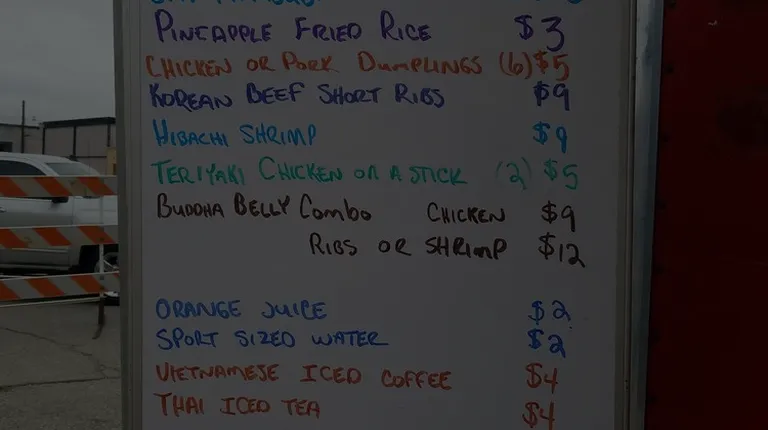 PINEAPPLE FRIED RICE $3
CHICKEN OR PORK DUMPLINGS (6) $5
KOREAN BEEF SHORT RIBS $9
HIBACHI SHRIMP $9
TERIYAKI CHICKEN ON A STICK (2) $5
BUDDHA BELLY COMBO CHICKEN $9
RIBS OR SHRIMP $12
ORANGE JUICE $2
SPORT SIZED WATER $2
VIETNAMESE ICED COFFEE $4
THAI ICED TEA $4